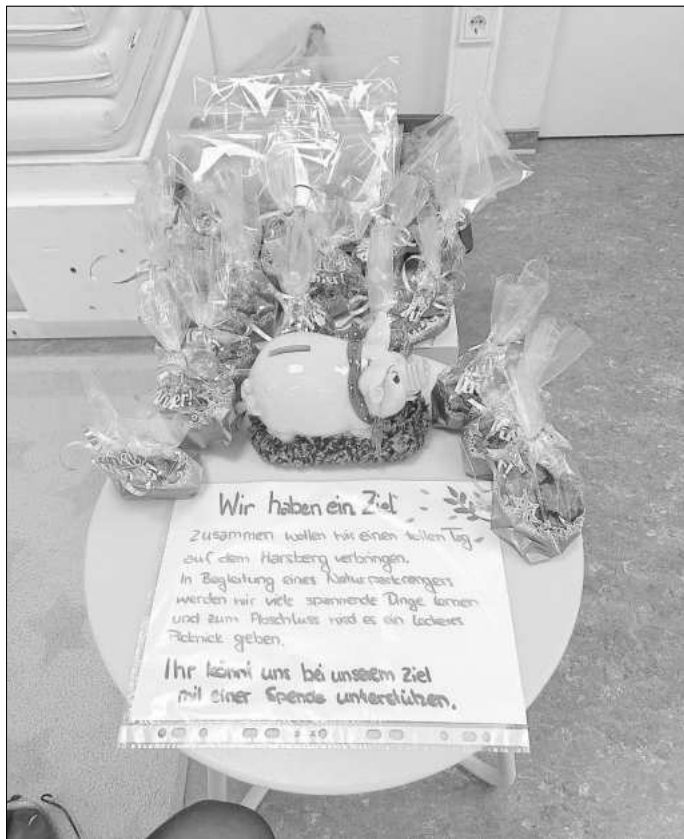 Wir haben ein Ziel
Zusammen wollen wir einen tollen Tag
auf dem Harsberg verbringen.
In Begleitung eines Naturparkrangers
werden wir viele spannende Dinge lernen
und zum Abschluss wird es ein leckeres
Picknick geben.
Ihr könnt uns bei unserem Ziel
mit einer Spende unterstützen.